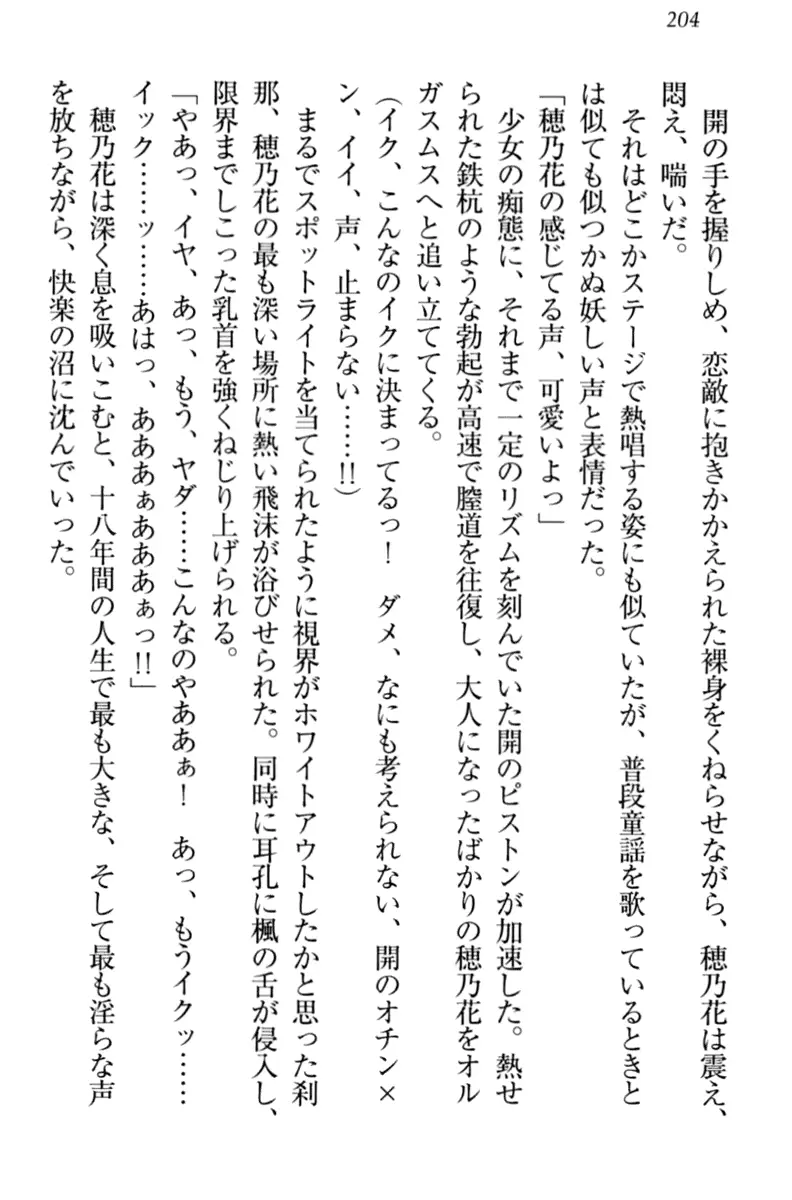 204
開の手を握りしめ、恋敵に抱きかかえられた裸身をくねらせながら、穂乃花は震え、
悶え、喘いだ。
それはどこかステージで熱唱する姿にも似ていたが、普段童謡を歌っているときと
は似ても似つかぬ妖しい声と表情だった。
「穂乃花の感じてる声、可愛いよっ」
少女の痴態に、それまで一定のリズムを刻んでいた開のピストンが加速した。熱せ
られた鉄杭のような勃起が高速で膣道を往復し、大人になったばかりの穂乃花をオル
ガスムスへと追い立ててくる。
(イク、こんなのイクに決まってるっ!　ダメ、なにも考えられない、開のオチン×
ン、イイ、声、止まらない……!!)
まるでスポットライトを当てられたように視界がホワイトアウトしたかと思った刹
那、穂乃花の最も深い場所に熱い飛沫が浴びせられた。同時に耳孔に楓の舌が侵入し、
限界までしこった乳首を強くねじり上げられる。
「やあっ、イヤ、あっ、もう、ヤダ……こんなのやああぁ!　あっ、もうイクッ……
イック……ッ……あはっ、あああぁあああぁっ!!」
穂乃花は深く息を吸いこむと、十八年間の人生で最も大きな、そして最も淫らな声
を放ちながら、快楽の沼に沈んでいった。